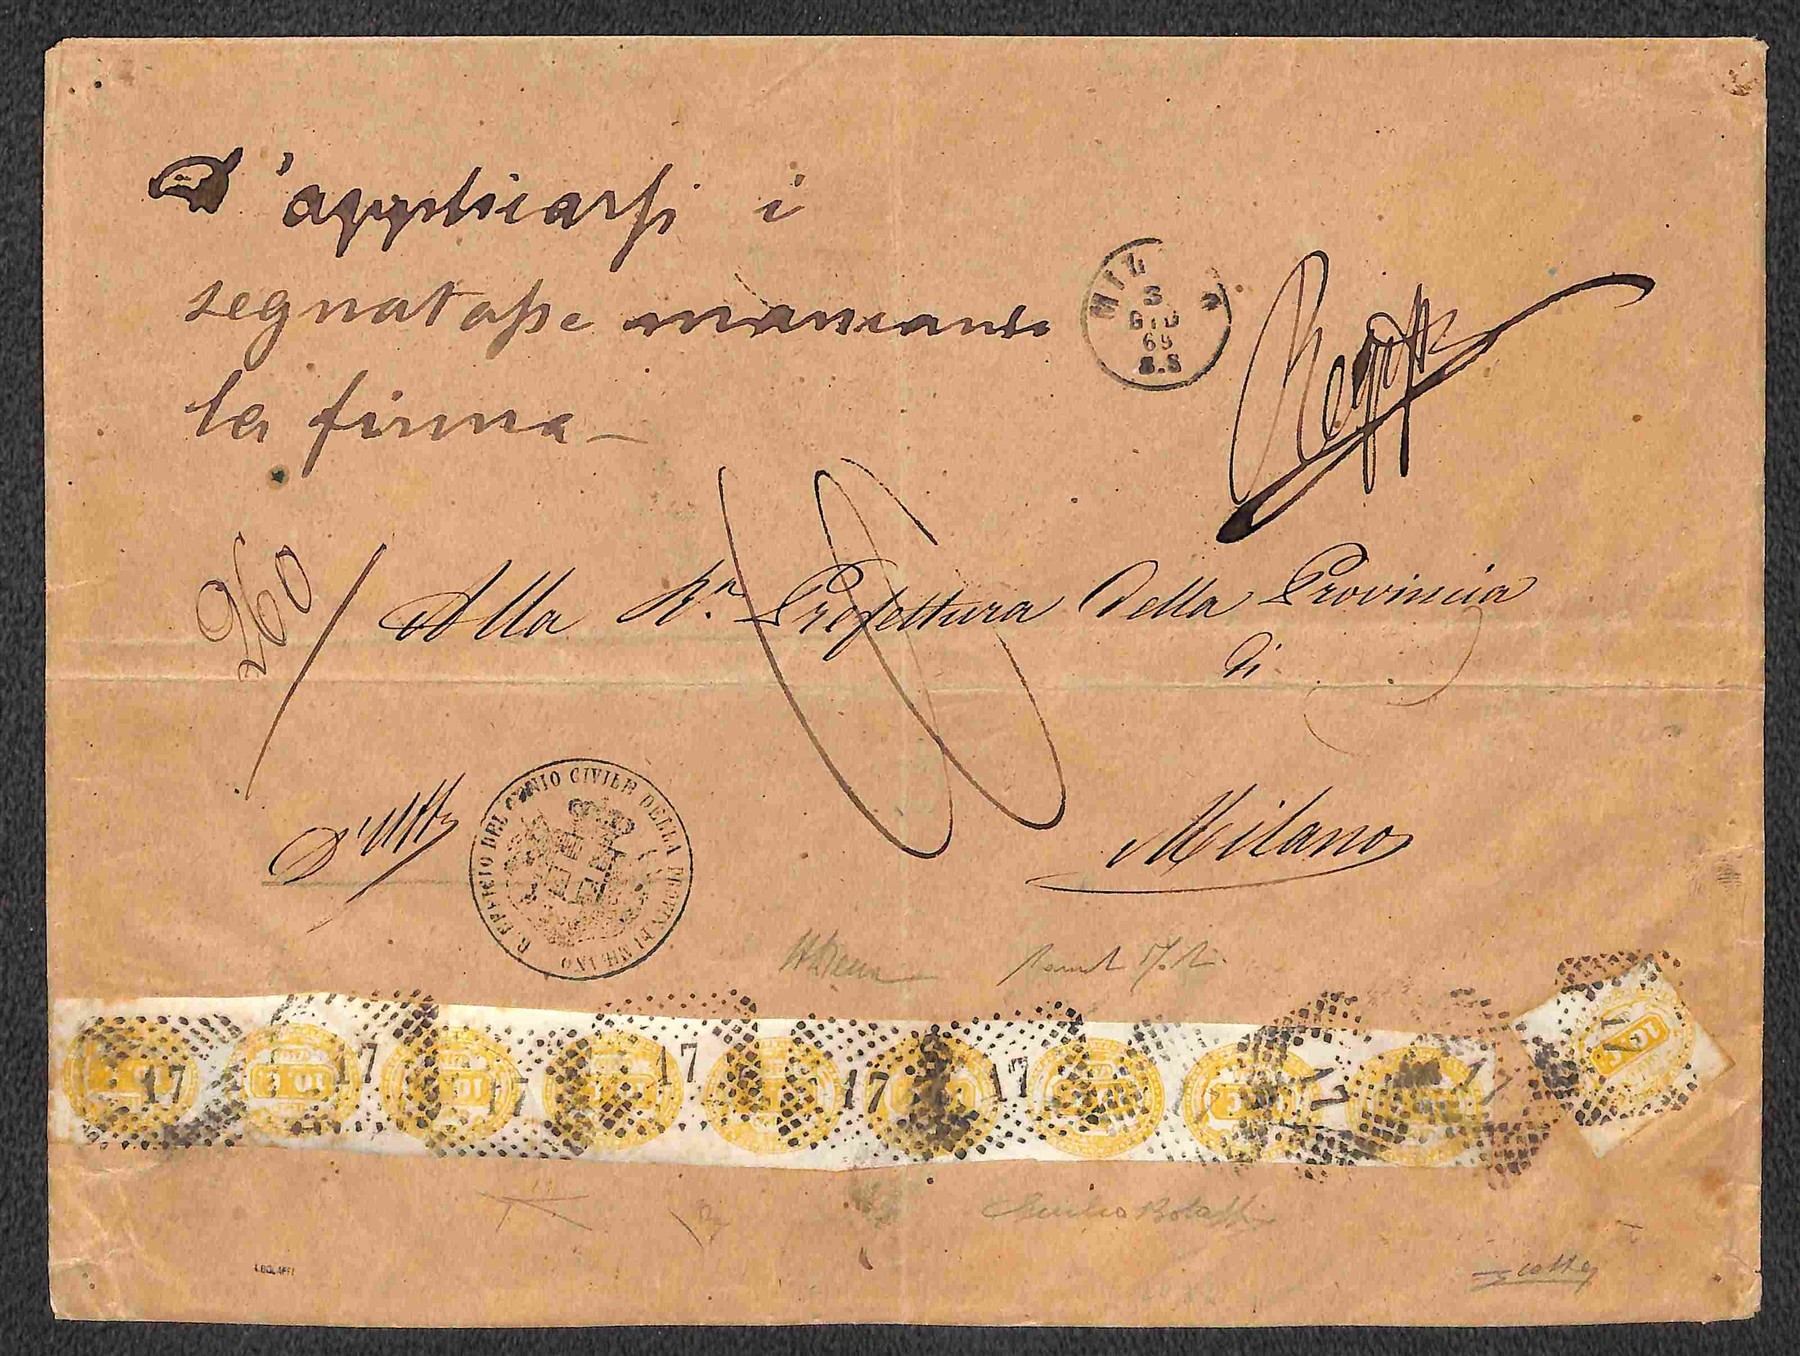 D'applicarsi i
segnatasse mancando
la firma
MIL
3
GIU
69
8.S
260
Alla R.a Prefettura della Provincia
di
Milano
D'Uffo
R. UFFICIO DEL GENIO CIVILE DELLA PROV. DI MILANO
17 17 17 17 17 17 17 17
10 10
Emilio Bolaffi
A.BOLAFFI